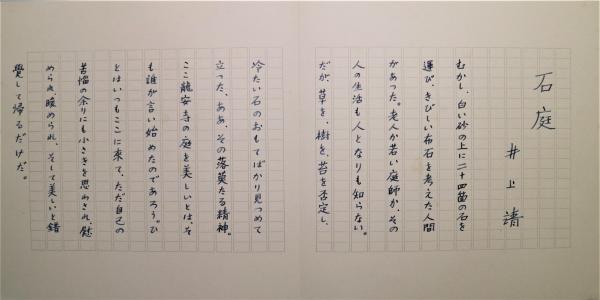 石庭
井上靖
むかし、白い砂の上に二十四箇の石を
運び、きびしい布石を考えた人間
があった。老人か若い庭師か、その
人の生活も人となりも知らない。
だが、草を、樹を、苔を否定し、
冷たい石のおもてばかり見つめて
立った、ああ、その落莫たる精神。
ここ龍安寺の庭を美しいとは、そ
も誰が言い始めたのであろう。ひ
とはいつもここに来て、ただ自己の
苦悩の余りにも小さきを思わされ、慰
められ、暖められ、そして美しいと錯
覚して帰るだけだ。